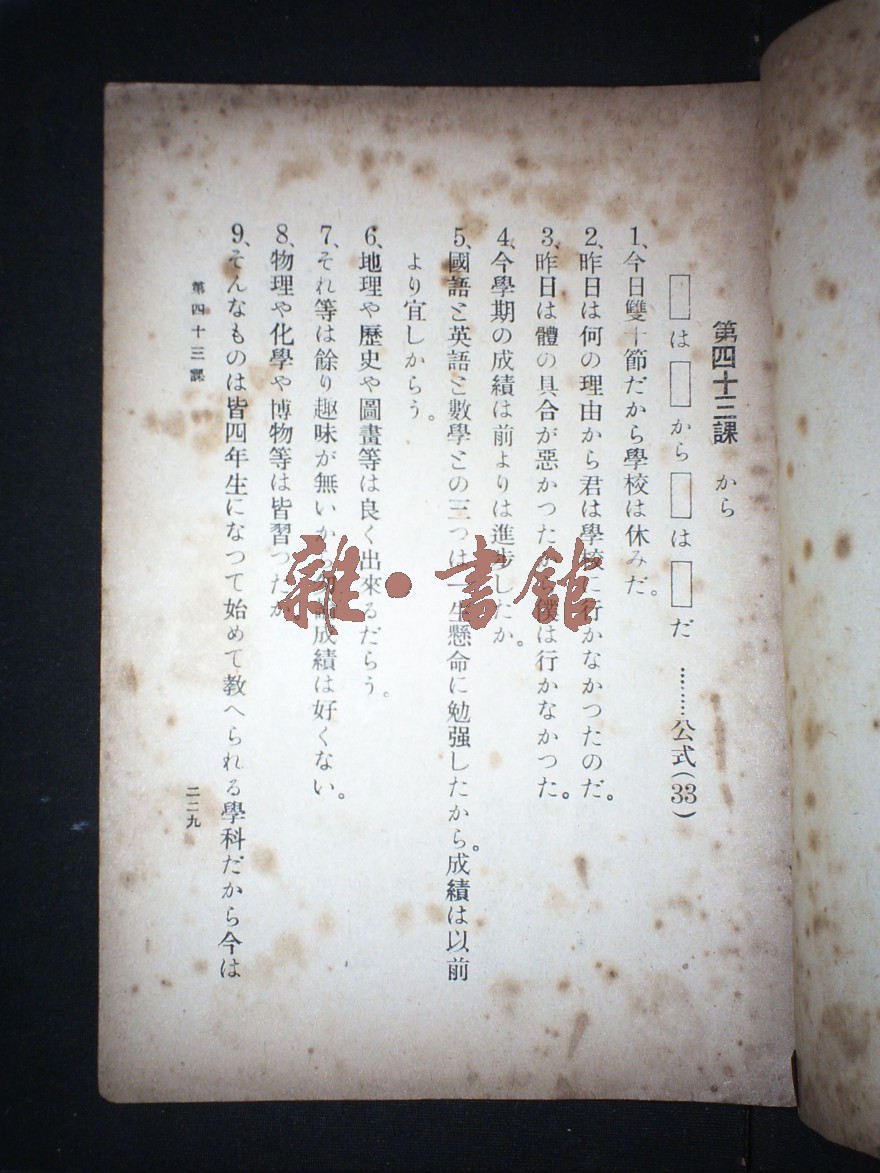 第四十三課 から
□は□から□は□だ ………公式(33)
1、今日雙十節だから學校は休みだ。
2、昨日は何の理由から君は學校に行かなかつたのだ。
3、昨日は體の具合が惡かつたか 僕は行かなかつた。
4、今學期の成績は前よりは進步したか。
5、國語と英語と數學との三つは一生懸命に勉强したから。成績は以前
より宜しからう。
6、地理や歷史や圖畫等は良く出來るだらう。
7、それ等は餘り趣味が無いから 成績は好くない。
8、物理や化學や博物等は皆習つたか。
9、そんなものは皆四年生になつて始めて敎へられる學科だから今は
第四十三課
二二九
雜·書館